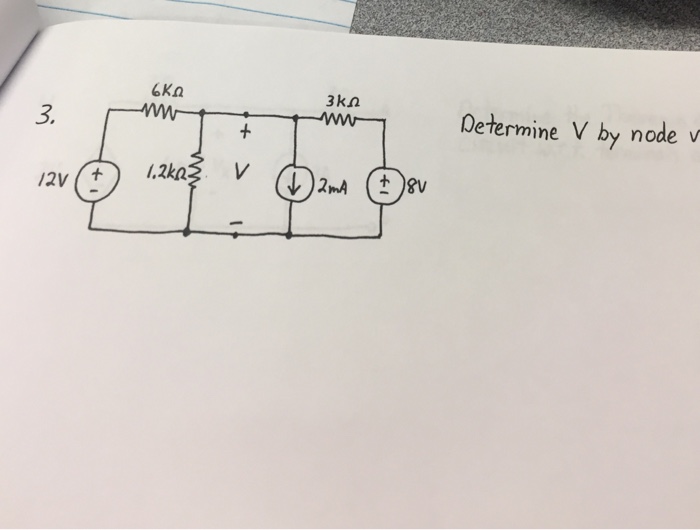 3.
6KΩ
3kΩ
Determine V by node
12V
+
-
1.2kΩ
+
V
-
2mA
+
-
8V